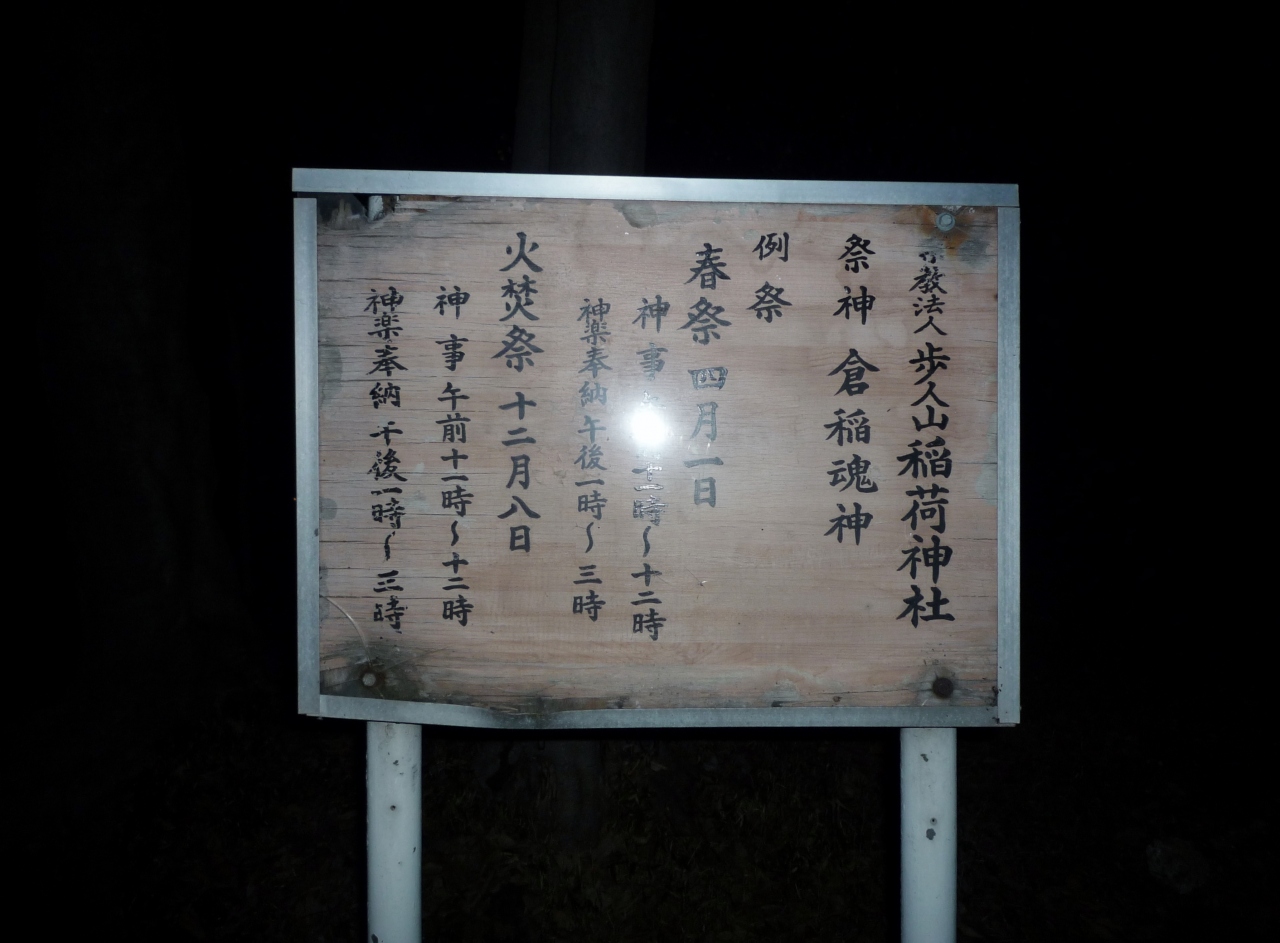 教法人 歩人山稲荷神社
祭神 倉稲魂神
例祭
春祭 四月一日
神事 十一時〜十二時
神楽奉納 午後一時〜三時
火焚祭 十二月八日
神事 午前十一時〜十二時
神楽奉納 午後一時〜三時